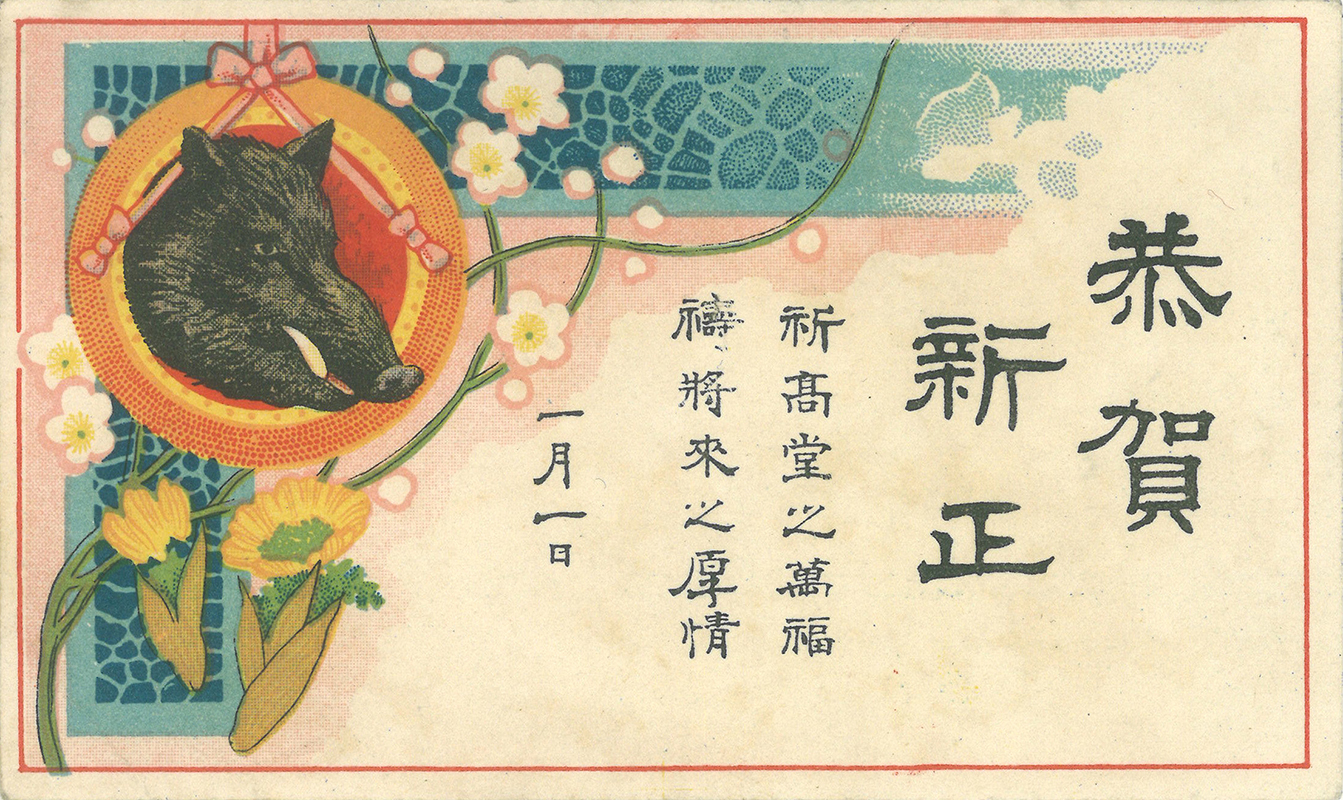 恭賀
新正
祈高堂之萬福
禱將來之厚情
一月一日